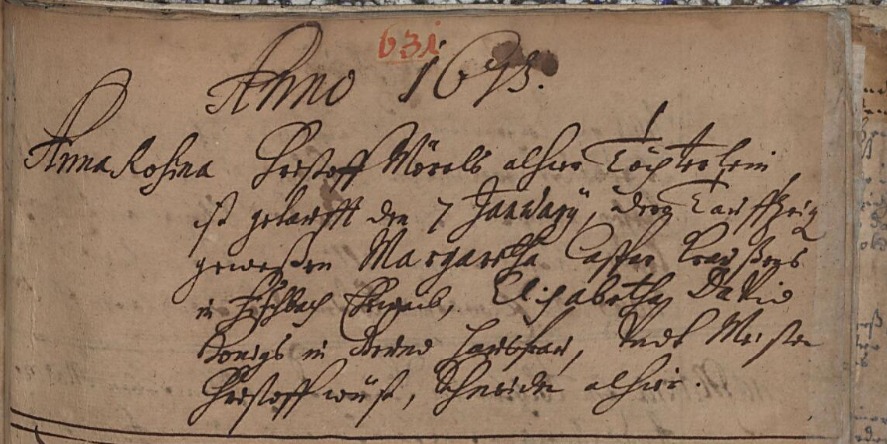 631
Anno 1673.
Anna Rosina Christoff Mörels alhier Töchterlein
ist getaufft den 7 January, deren Tauffzeug
gewesen Margaretha Caspar
in Fischbach Eheweib, Elisabetha David
Königs in Hausfrau, undt Meister
Christoff wüst, Schneider alhier.